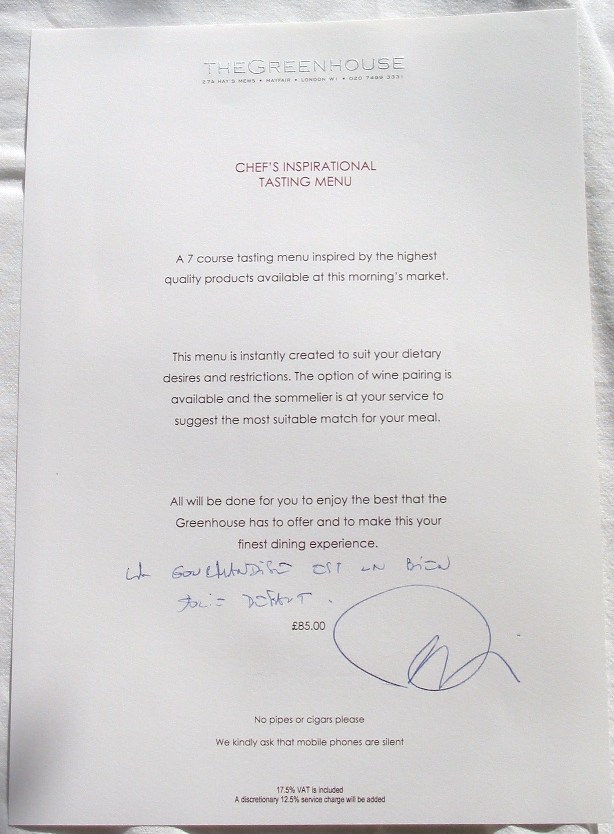 THE GREENHOUSE
27A HAY'S MEWS • MAYFAIR • LONDON W1 • 020 7499 3331
CHEF'S INSPIRATIONAL
TASTING MENU
A 7 course tasting menu inspired by the highest
quality products available at this morning's market.
This menu is instantly created to suit your dietary
desires and restrictions. The option of wine pairing is
available and the sommelier is at your service to
suggest the most suitable match for your meal.
All will be done for you to enjoy the best that the
Greenhouse has to offer and to make this your
finest dining experience.
LA GOURMANDISE EST UN BIEN
JOLIE DEFAUT.
£85.00
No pipes or cigars please
We kindly ask that mobile phones are silent
17.5% VAT is included
A discretionary 12.5% service charge will be added